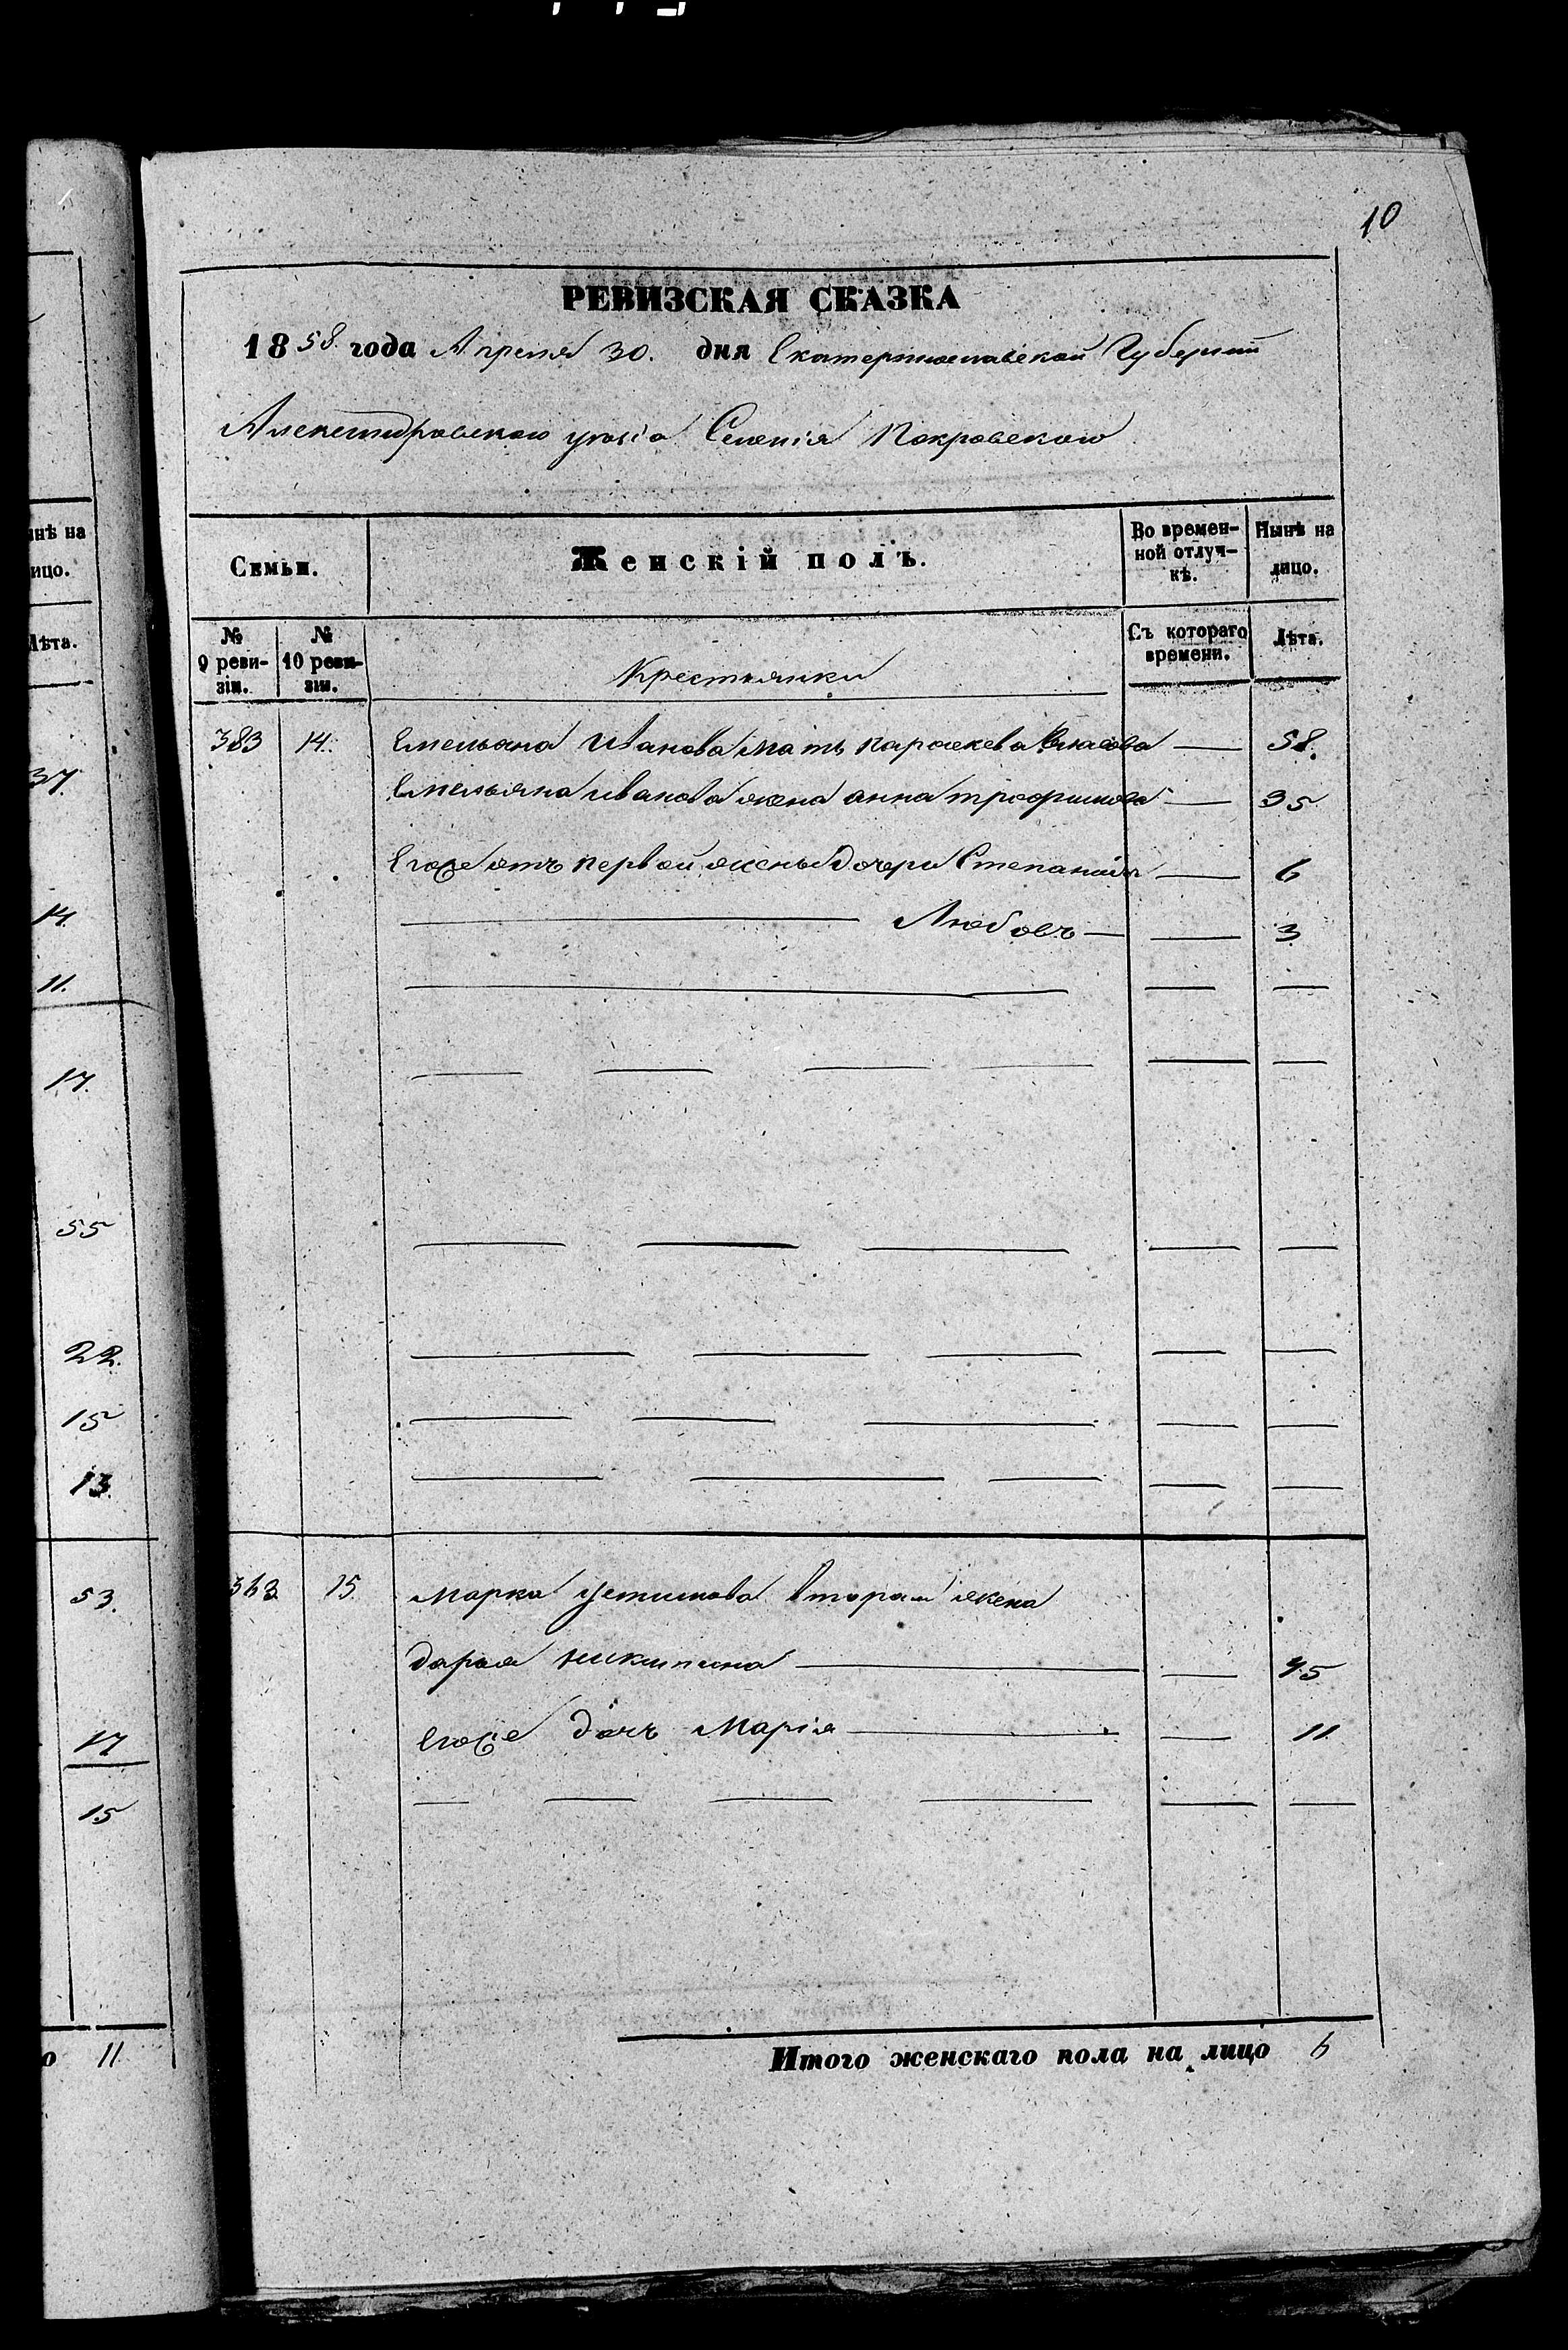 10
РЕВИЗСКАЯ СКАЗКА
1858. года Апреля 30. дня Екатеринославской Губернии
Александровского уезда Селенія Покровского
Семьи. Женскій полъ. Во времен-ной отлуч-кѣ. Нынѣ на лицо.
№ 9 реви-зіи. № 10 реви-зіи. Крестьянки Съ котораго времени. Лѣта.
383 14. Емельяна Иванова мать Параскева Власова — 58.
Емельяна Иванова жена анна трофимова — 35
Егоже отъ первой жены дочери Степанида — 6
Любовъ — 3
363 15. Марка Устимова вторая жена
дарья никитина — 45
Егоже дочь Марія — 11.
Итого женскаго пола на лицо 6
инѣ на
ицо.
Лѣта.
37.
14.
11.
17.
55
22.
15
13.
53.
17
15
о 11